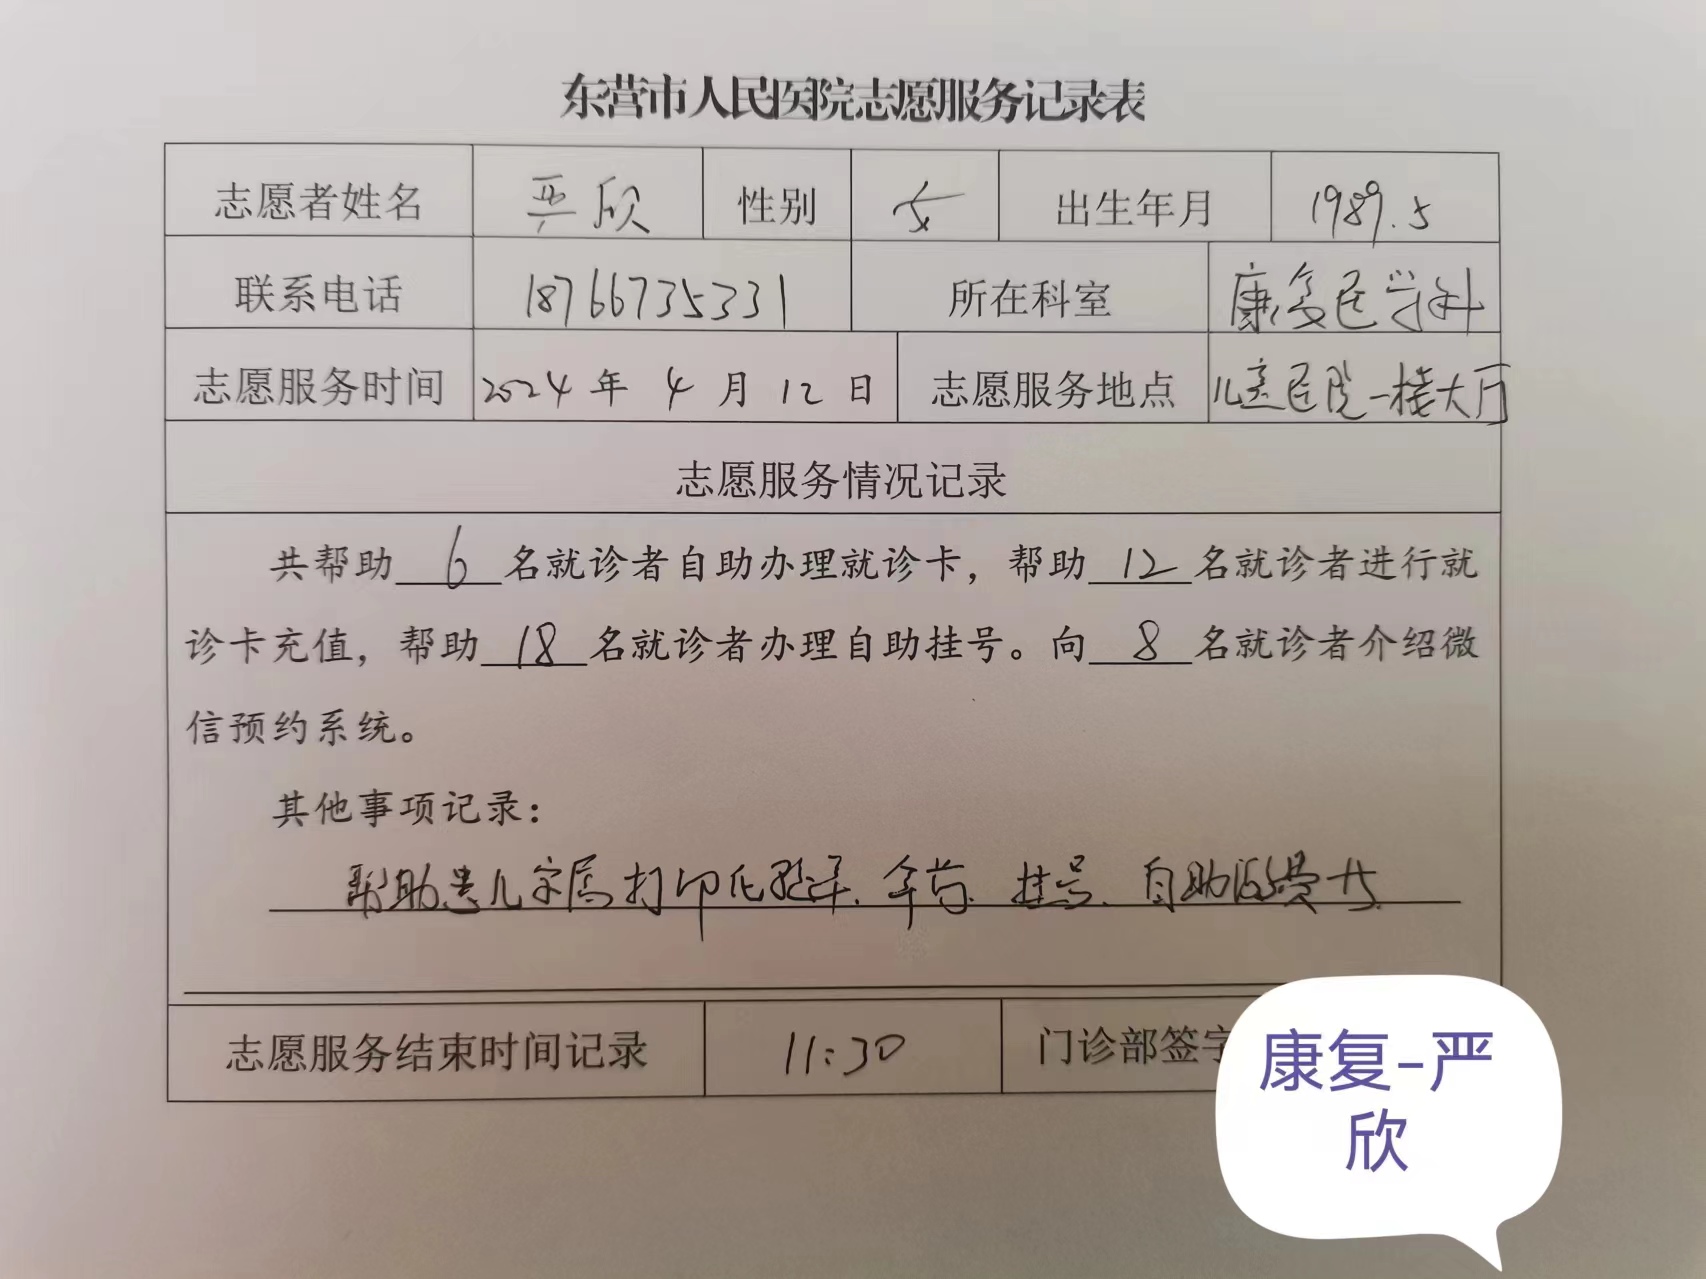 东营市人民医院志愿服务记录表
志愿者姓名 严欣 性别 女 出生年月 1989.5
联系电话 18766735331 所在科室 康复医学科
志愿服务时间 2024年4月12日 志愿服务地点 儿童医院一楼大厅
志愿服务情况记录
共帮助6名就诊者自助办理就诊卡，帮助12名就诊者进行就
诊卡充值，帮助18名就诊者办理自助挂号。向8名就诊者介绍微
信预约系统。
其他事项记录：
帮助患儿家属打印化验单、拿药、挂号、自助缴费
志愿服务结束时间记录 11:30 门诊部签字
康复-严
欣